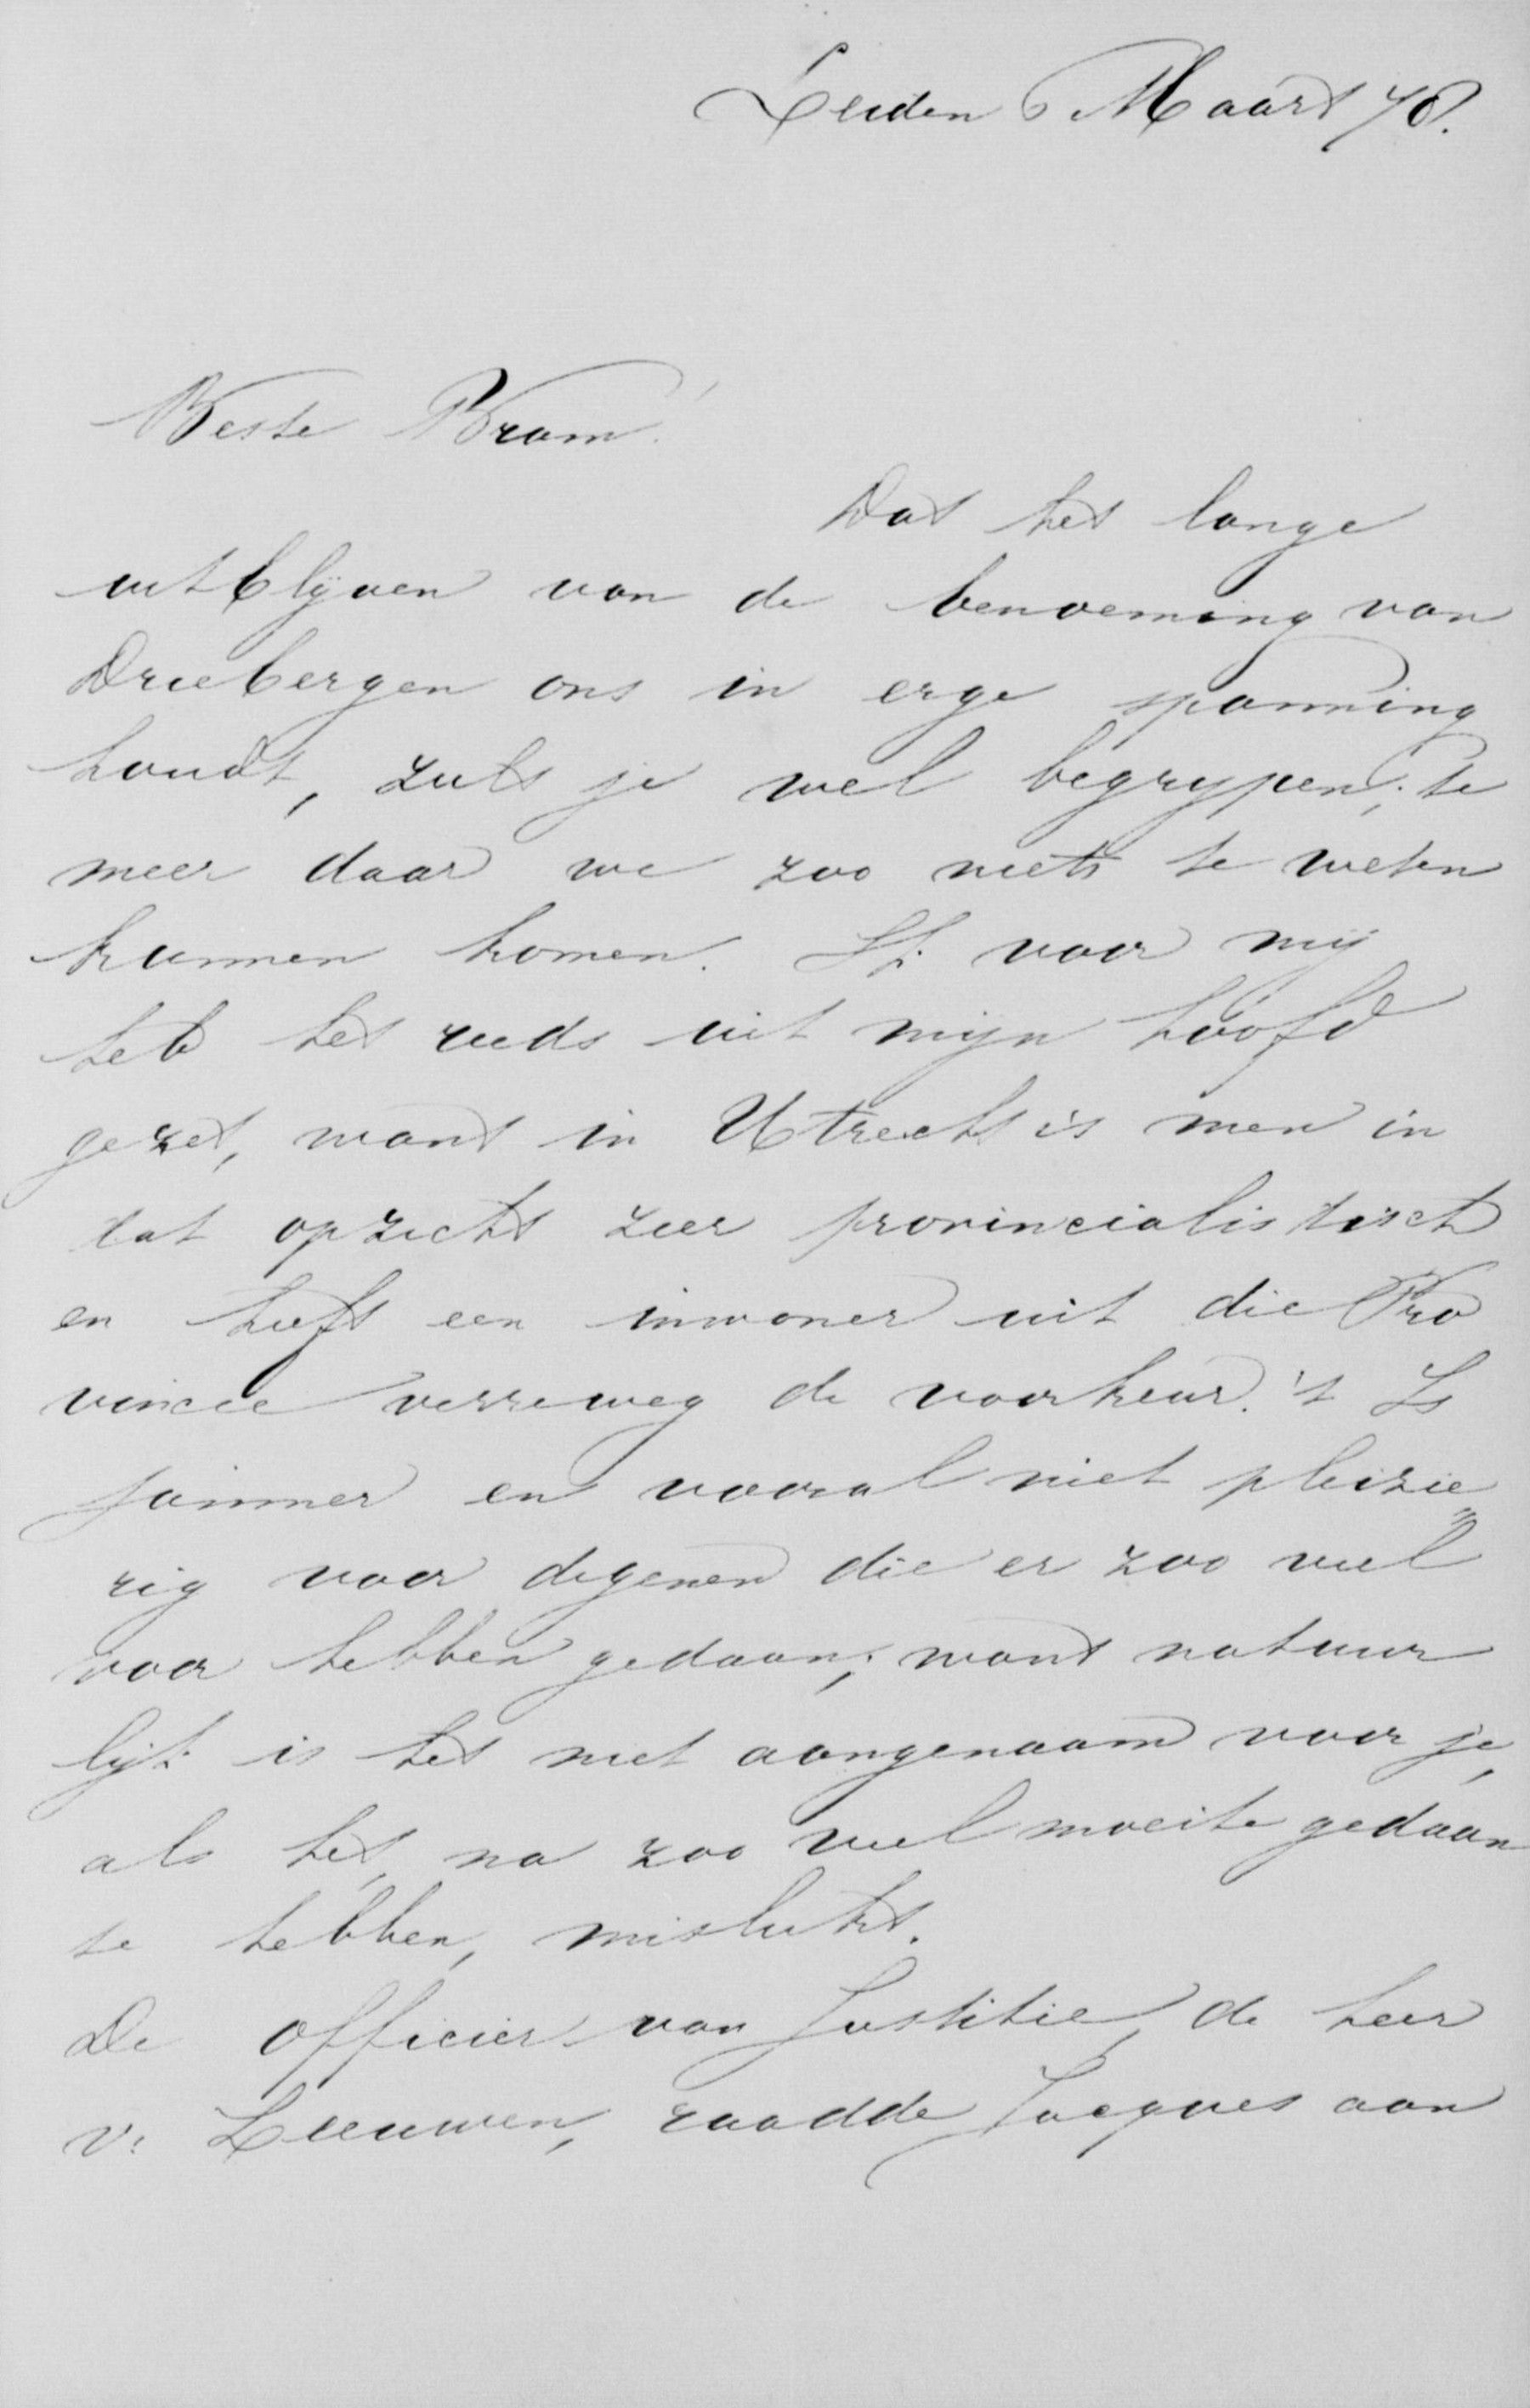 Leiden 6 Maart 78.
Beste Bram!
Dat het lange
uitblijven van de benoeming van
Driebergen ons in erge spanning
houdt, zult je wel begrypen; te
meer daar we zoo niets te weten
kunnen komen. Ik voor mij
heb het reeds uit mijn hoofd
gezet, want in Utrecht is men in
dat opzicht zeer provincialistisch
en heeft een inwoner uit die Pro
vincie verreweg de voorkeur. 't Is
jammer en vooral niet pleizie„
rig voor degenen die er zoo veel
voor hebben gedaan; want natuur
lijk is het niet aangenaam voor je,
als het, na zoo veel moeite gedaan
te hebben, mislukt.
De officier van Justitie, de heer
v. Leeuwen, raadde Jacques aan